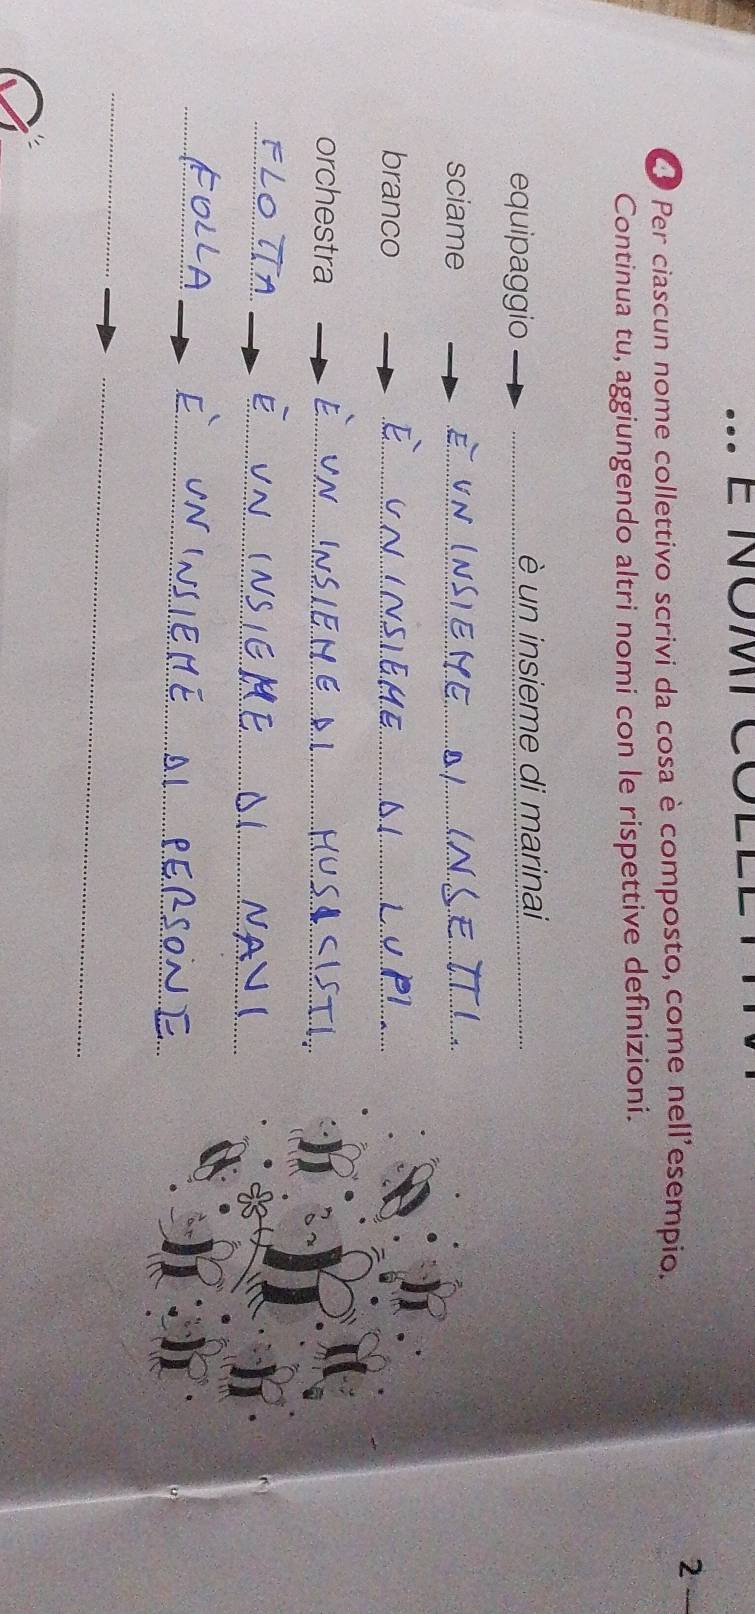 ... E NOMI COLLETTIVI
4 Per ciascun nome collettivo scrivi da cosa è composto, come nell'esempio.
Continua tu, aggiungendo altri nomi con le rispettive definizioni.
equipaggio è un insieme di marinai
sciame È UN INSIEME DI INSETTI.
branco È UN INSIEME DI LUPI.
orchestra È UN INSIEME DI MUSICISTI.
FLOTTA È UN INSIEME DI NAVI
FOLLA È UN INSIEME DI PERSONE
2